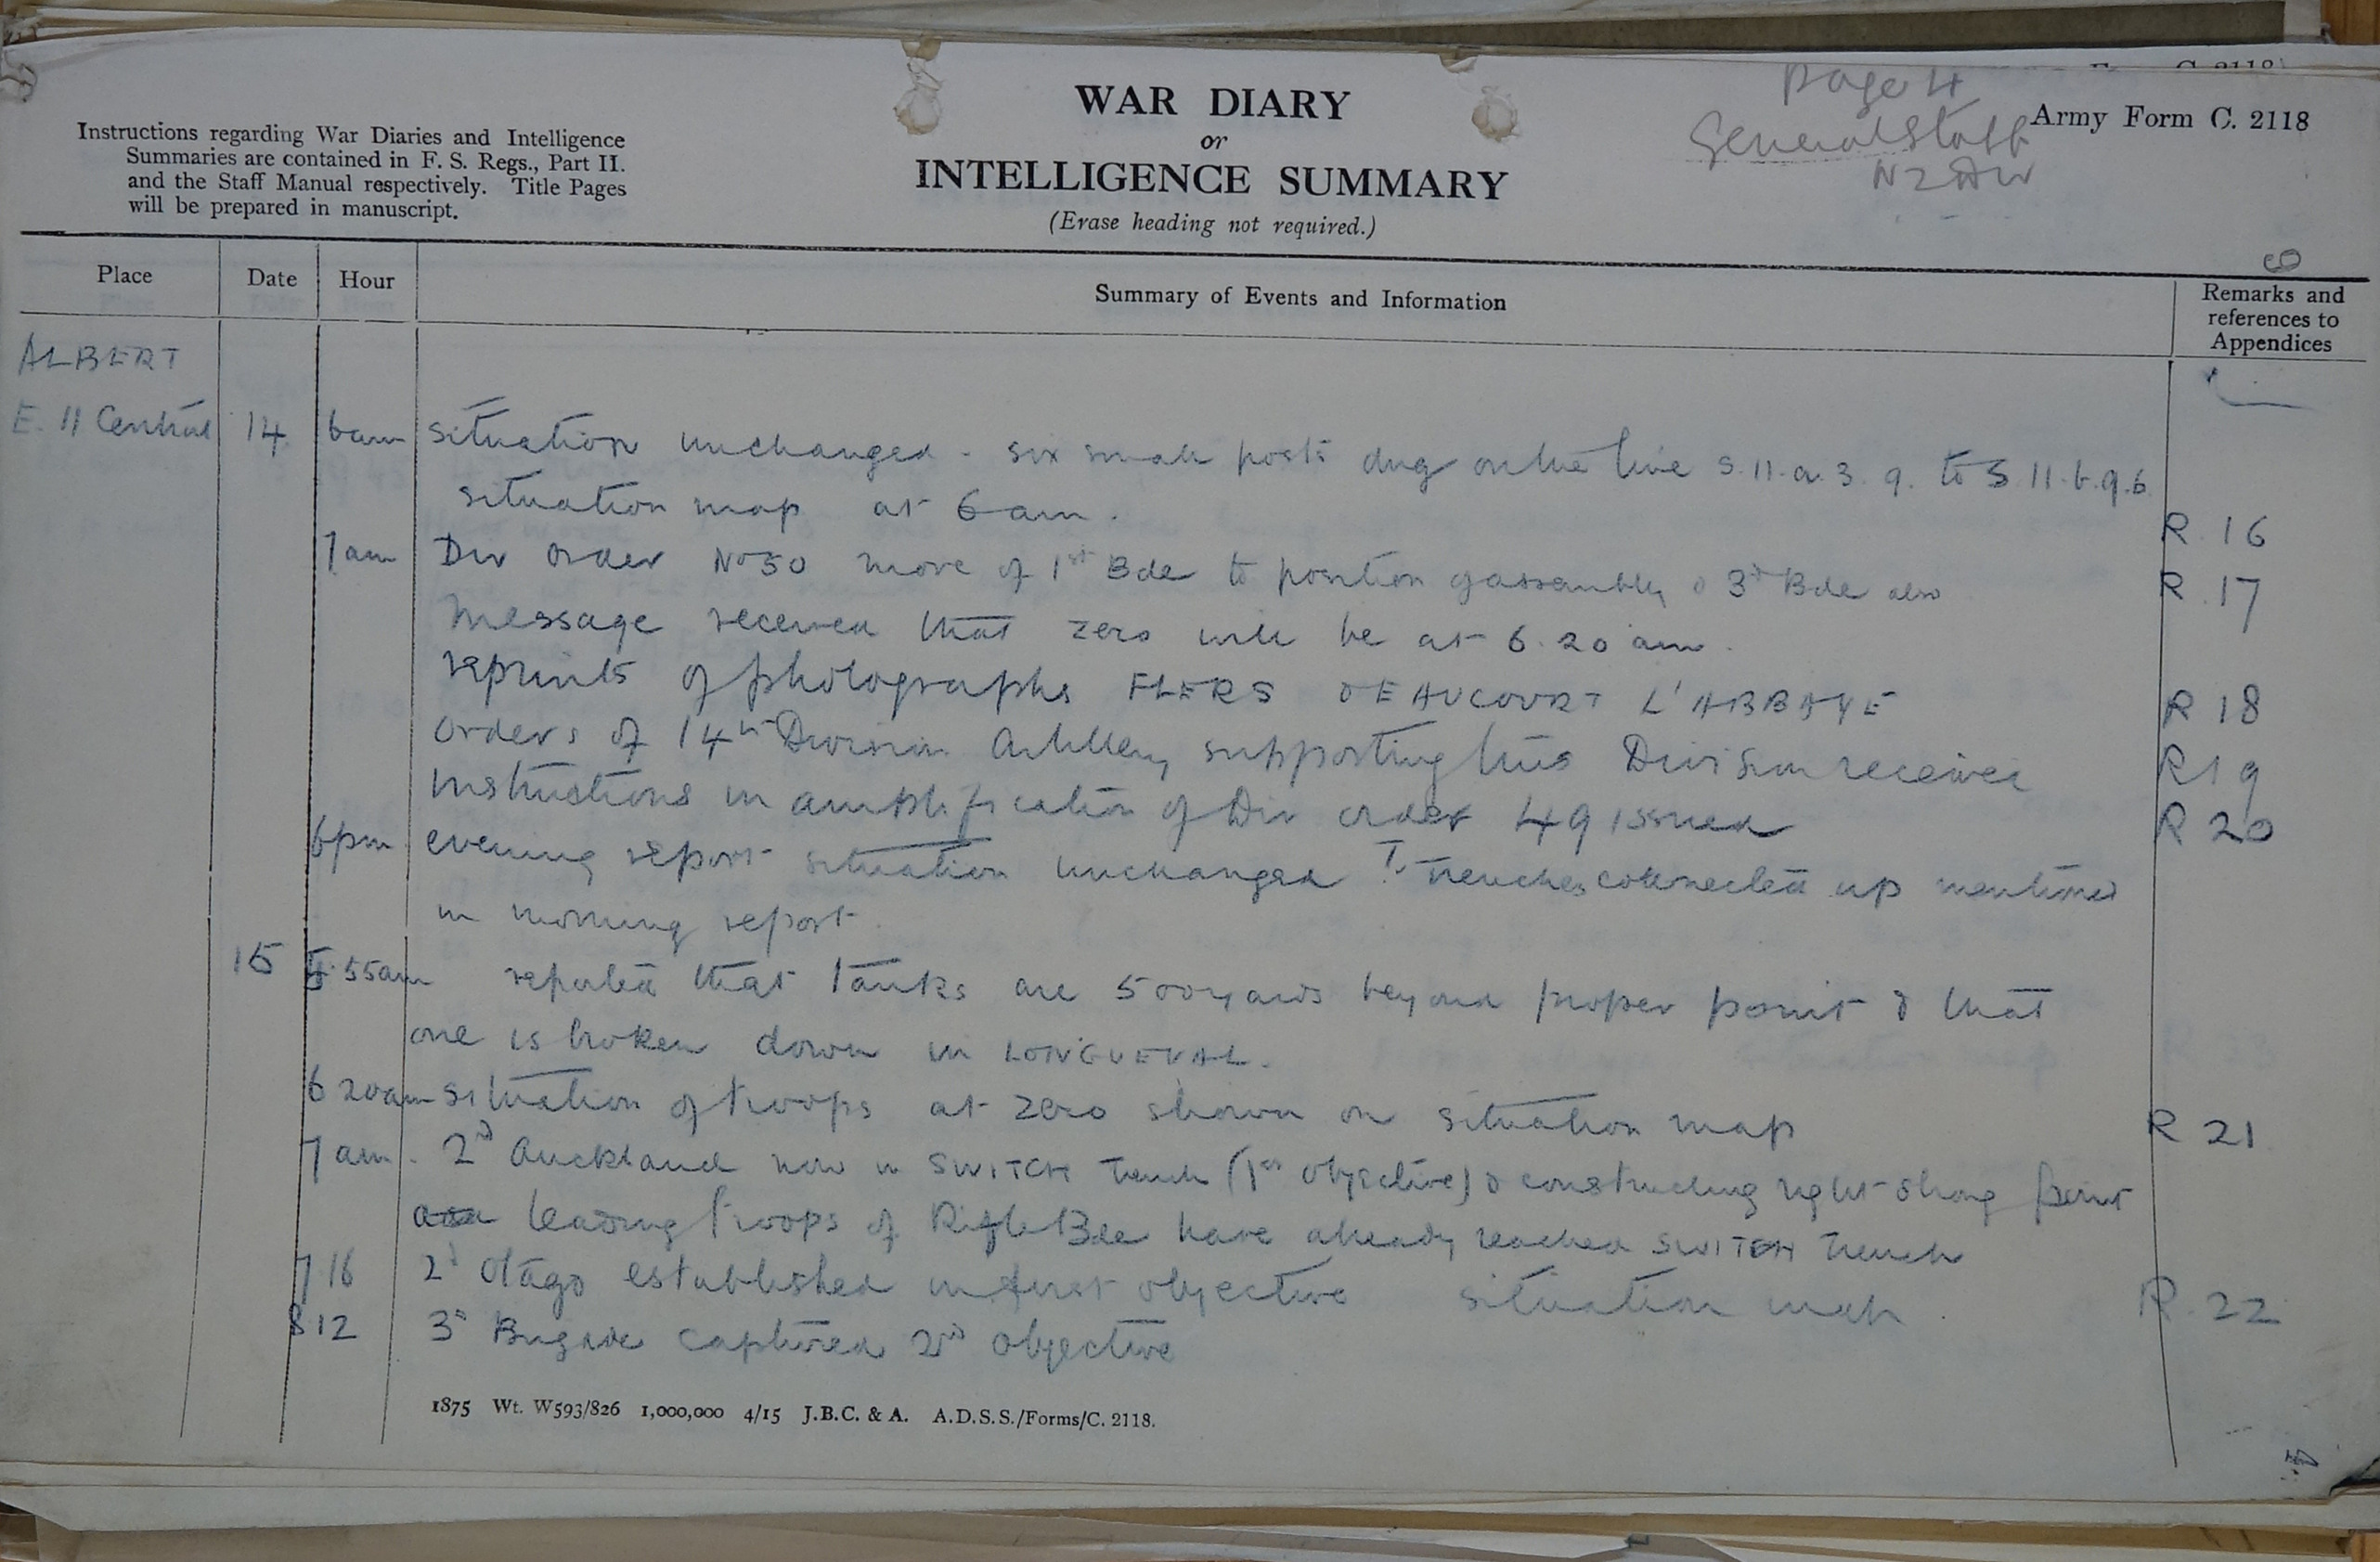 Page 4
General Staff
NZ Div
Army Form C. 2118
WAR DIARY
or
INTELLIGENCE SUMMARY
(Erase heading not required.)
Instructions regarding War Diaries and Intelligence
Summaries are contained in F. S. Regs., Part II.
and the Staff Manual respectively. Title Pages
will be prepared in manuscript.
Place Date Hour Summary of Events and Information Remarks and
references to
Appendices
ALBERT
E. 11 Central 14 6am situation unchanged - six small posts dug on the line S.11.a.3.9. to S.11.b.9.6
situation map at 6am. R. 16
7am Div Order No 50 move of 1st Bde to position of assembly & 3rd Bde also R. 17
Message received that zero will be at 6.20 am.
reprints of photographs FLERS & EAUCOURT L'ABBAYE R 18
Orders of 14th Division Artillery supporting this Division received R19
Instructions in amplification of Div order 49 issued R 20
6pm evening report situation unchanged Trenches connected up mentioned
in morning report
15 55am reported that tanks are 500 yards beyond proper point & that
one is broken down in LONGUEVAL.
6 20am situation of troops at zero shown on situation map R 21
7am. 2d Auckland now in SWITCH Trench (1st objective) & constructing right strong point
leading troops of Rifle Bde have already reached SWITCH Trench
7 16 2d Otago established in first objective situation map. R. 22
8 12 3d Brigade captured 2nd Objective
1875 Wt. W593/826 1,000,000 4/15 J.B.C. & A. A.D.S.S./Forms/C. 2118.